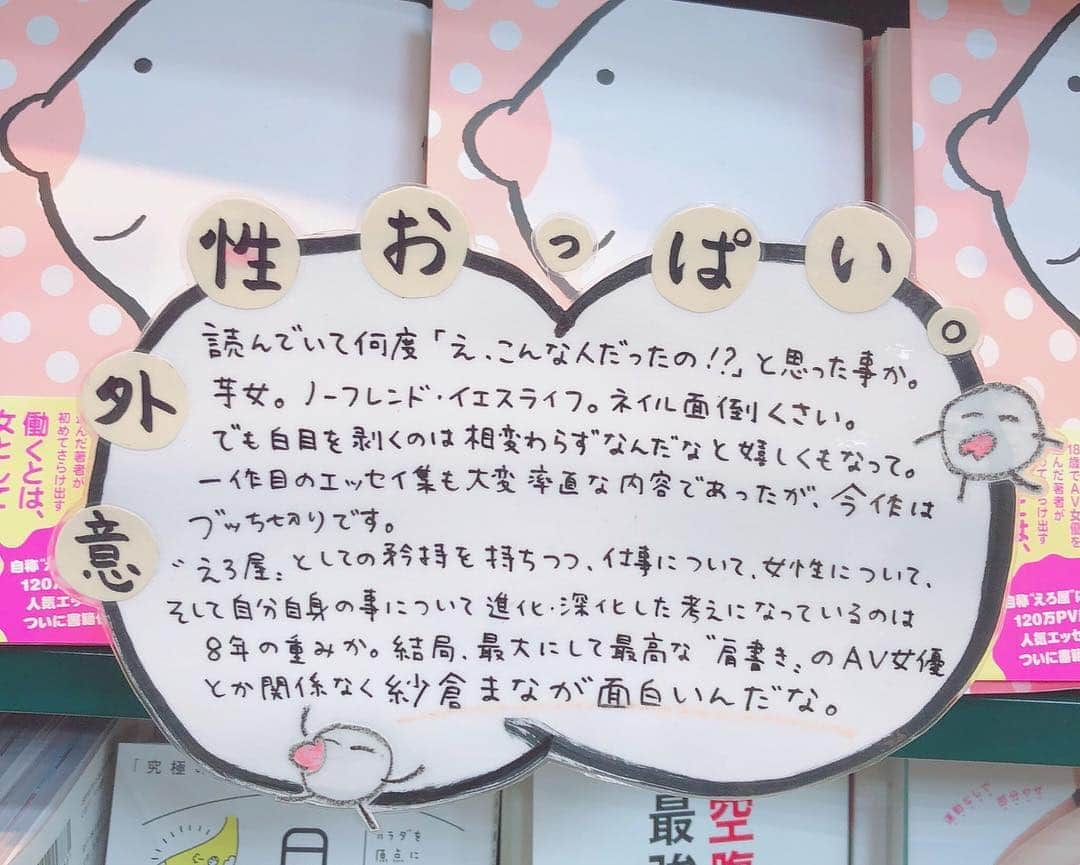 意外性おっぱい。
読んでいて何度「え、こんな人だったの!?」と思った事か。
芋女。ノーフレンド・イエスライフ。ネイル面倒くさい。
でも白目を剥くのは相変わらずなんだなと嬉しくもなって。
一作目のエッセイ集も大変率直な内容であったが、今作は
ブッち切りです。
"えろ屋"としての矜持を持ちつつ、仕事について、女性について、
そして自分自身の事について進化・深化した考えになっているのは
8年の重みか。結局、最大にして最高な"肩書き"のAV女優
とか関係なく紗倉まなが面白いんだな。
んだ著者が
初めてさらけ出す
働くとは、
女として
自称"え
120万
人気エッ
ついに書籍化
18歳でAV女優を
んだ著者が
らけ出す
は、
自称"えろ屋"
120万PV
人気エッセ
ついに書籍
「究極
カラダを
原点に
空腹
最強